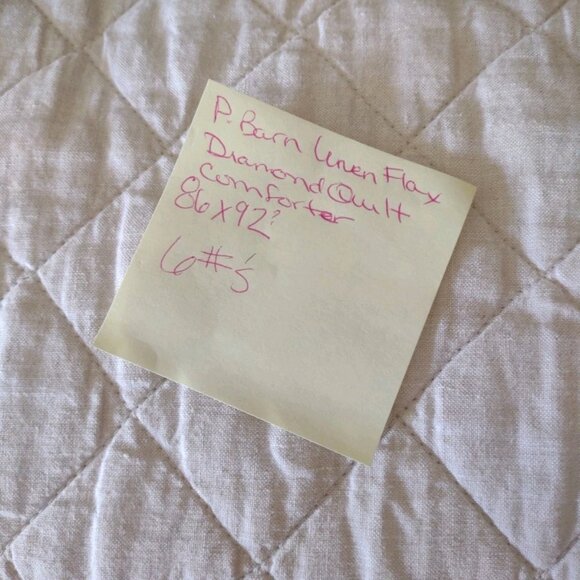 P. Barn Linen Flax
Diamond Quilt
Comforter
86x92?
6#'s